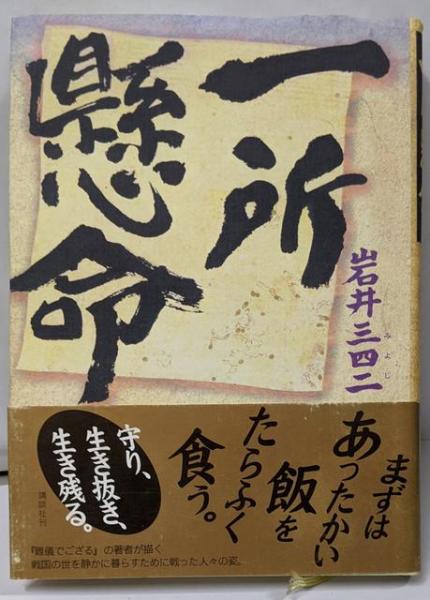 一所
懸命
岩井三四二
みよじ
まずは
あったかい
飯を
たらふく
食う。
守り、
生き抜き、
生き残る。
講談社刊
『難儀でござる』の著者が描く
戦国の世を静かに暮らすために戦った人々の姿。